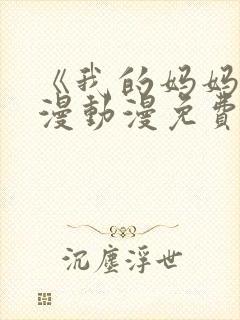 《我的妈妈
漫動漫免費
沉塵浮世